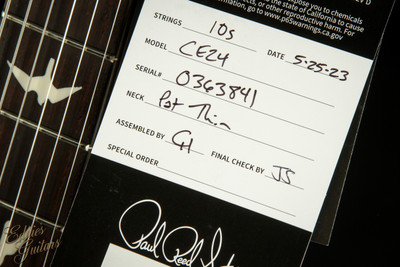 pose you to chemicals
the state of California to cause
or other reproductive harm. For
go to www.p65warnings.ca.gov
STRINGS 10s DATE 5-25-23
MODEL CE24
SERIAL# 0363841
NECK Pat Thin
ASSEMBLED BY GH FINAL CHECK BY JS
SPECIAL ORDER
Paul Reed
Eddies
Guitars